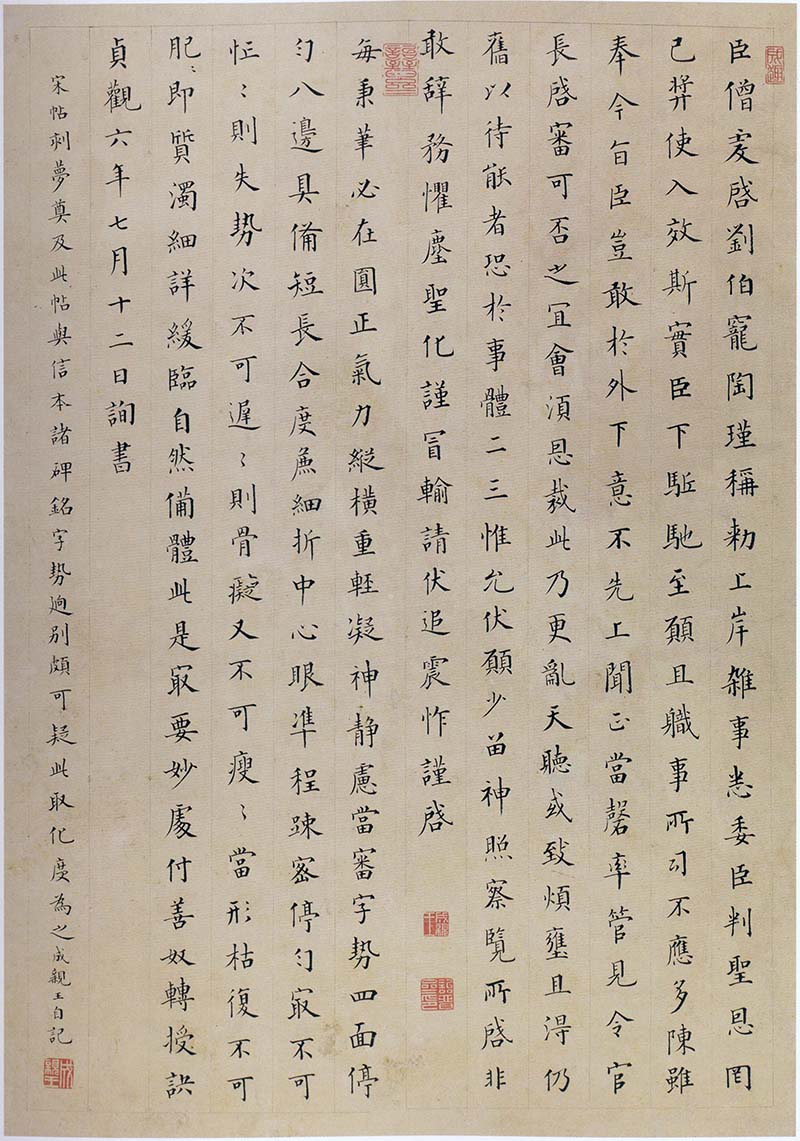 臣僧虔啓劉伯寵陶瑾稱勑上岸雜事悉委臣判聖恩罔
已弉使入效斯實臣下駈馳至願且職事所司不應多陳雖
奉今旨臣豈敢於外下意不先上聞正當罄率管見令官
長啓審可否之宜會湏恩裁此乃更亂天聽或致煩壅且淂仍
舊以待能者恐於事體二三惟允伏願少留神照察覽所啓非
敢辞務懼塵聖化謹冐輸請伏追震怍謹啓
每秉筆必在圓正氣力縱橫重輕凝神静慮當審字勢四面停
匀八邊具備短長合度麁細折中心眼準程踈密停匀冣不可
忙〻則失勢次不可遲〻則骨癡又不可瘦〻當形枯復不可
肥〻即質濁細詳緩臨自然備體此是冣要妙處付善奴轉授訣
貞觀六年七月十二日詢書
宋帖刺夢奠及此帖與信本諸碑銘字勢逈別頗可疑此取化度為之成親王自記